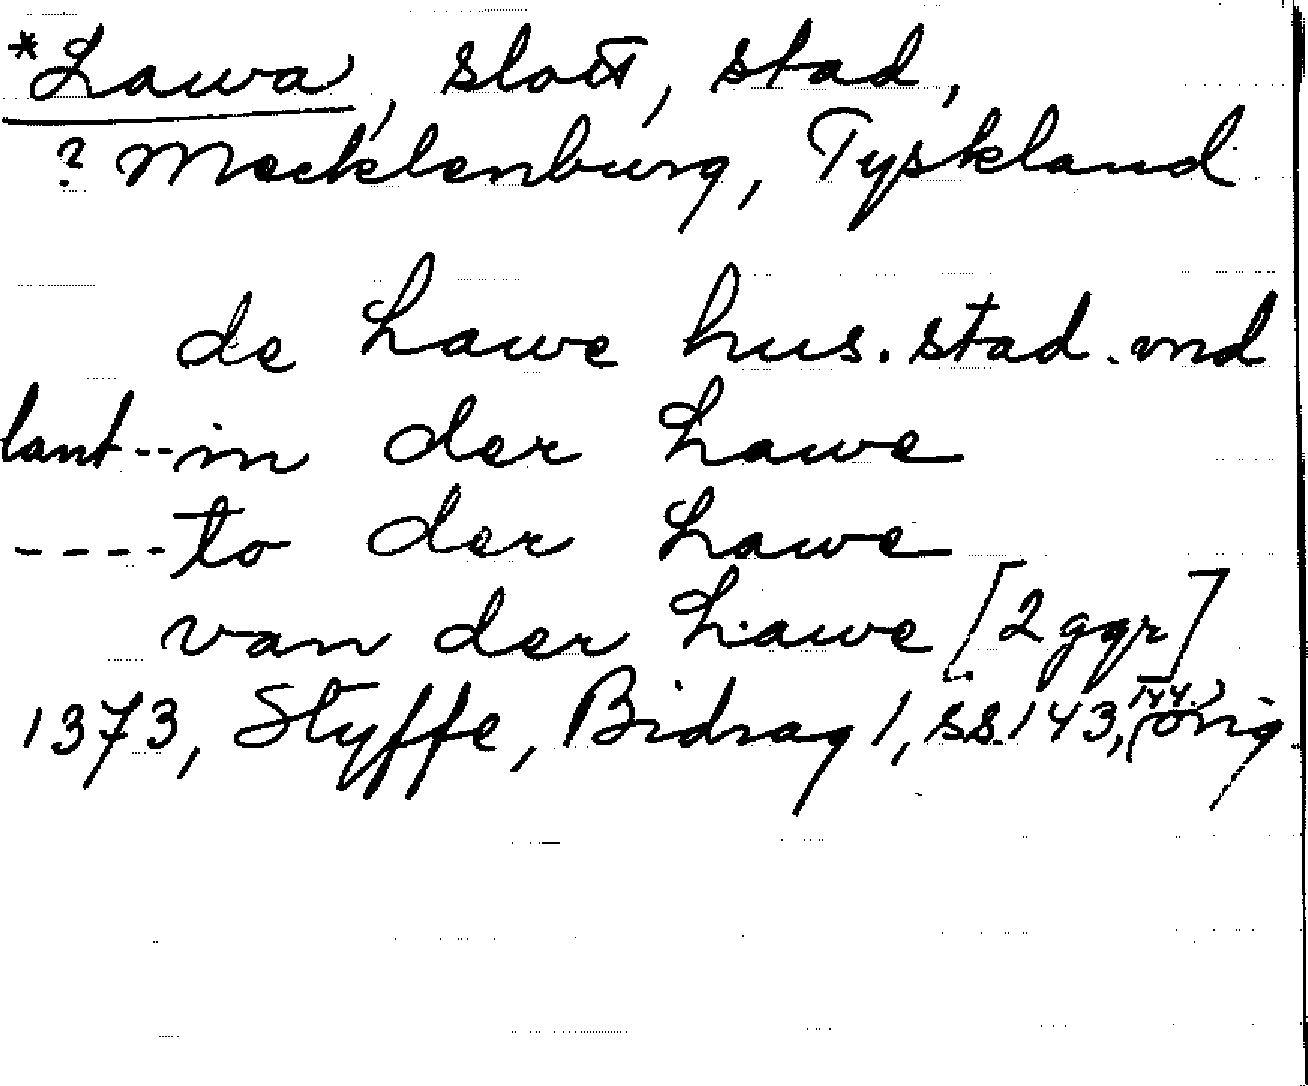 *Lawa, slott, stad,
? Mecklenburg, Tyskland
de Lawe hus. stad. vnd
lant -- in der Lawe
---- to der Lawe
van der Lawe [2 ggr]
1373, Styffe, Bidrag 1, ss. 143, 144. (orig.